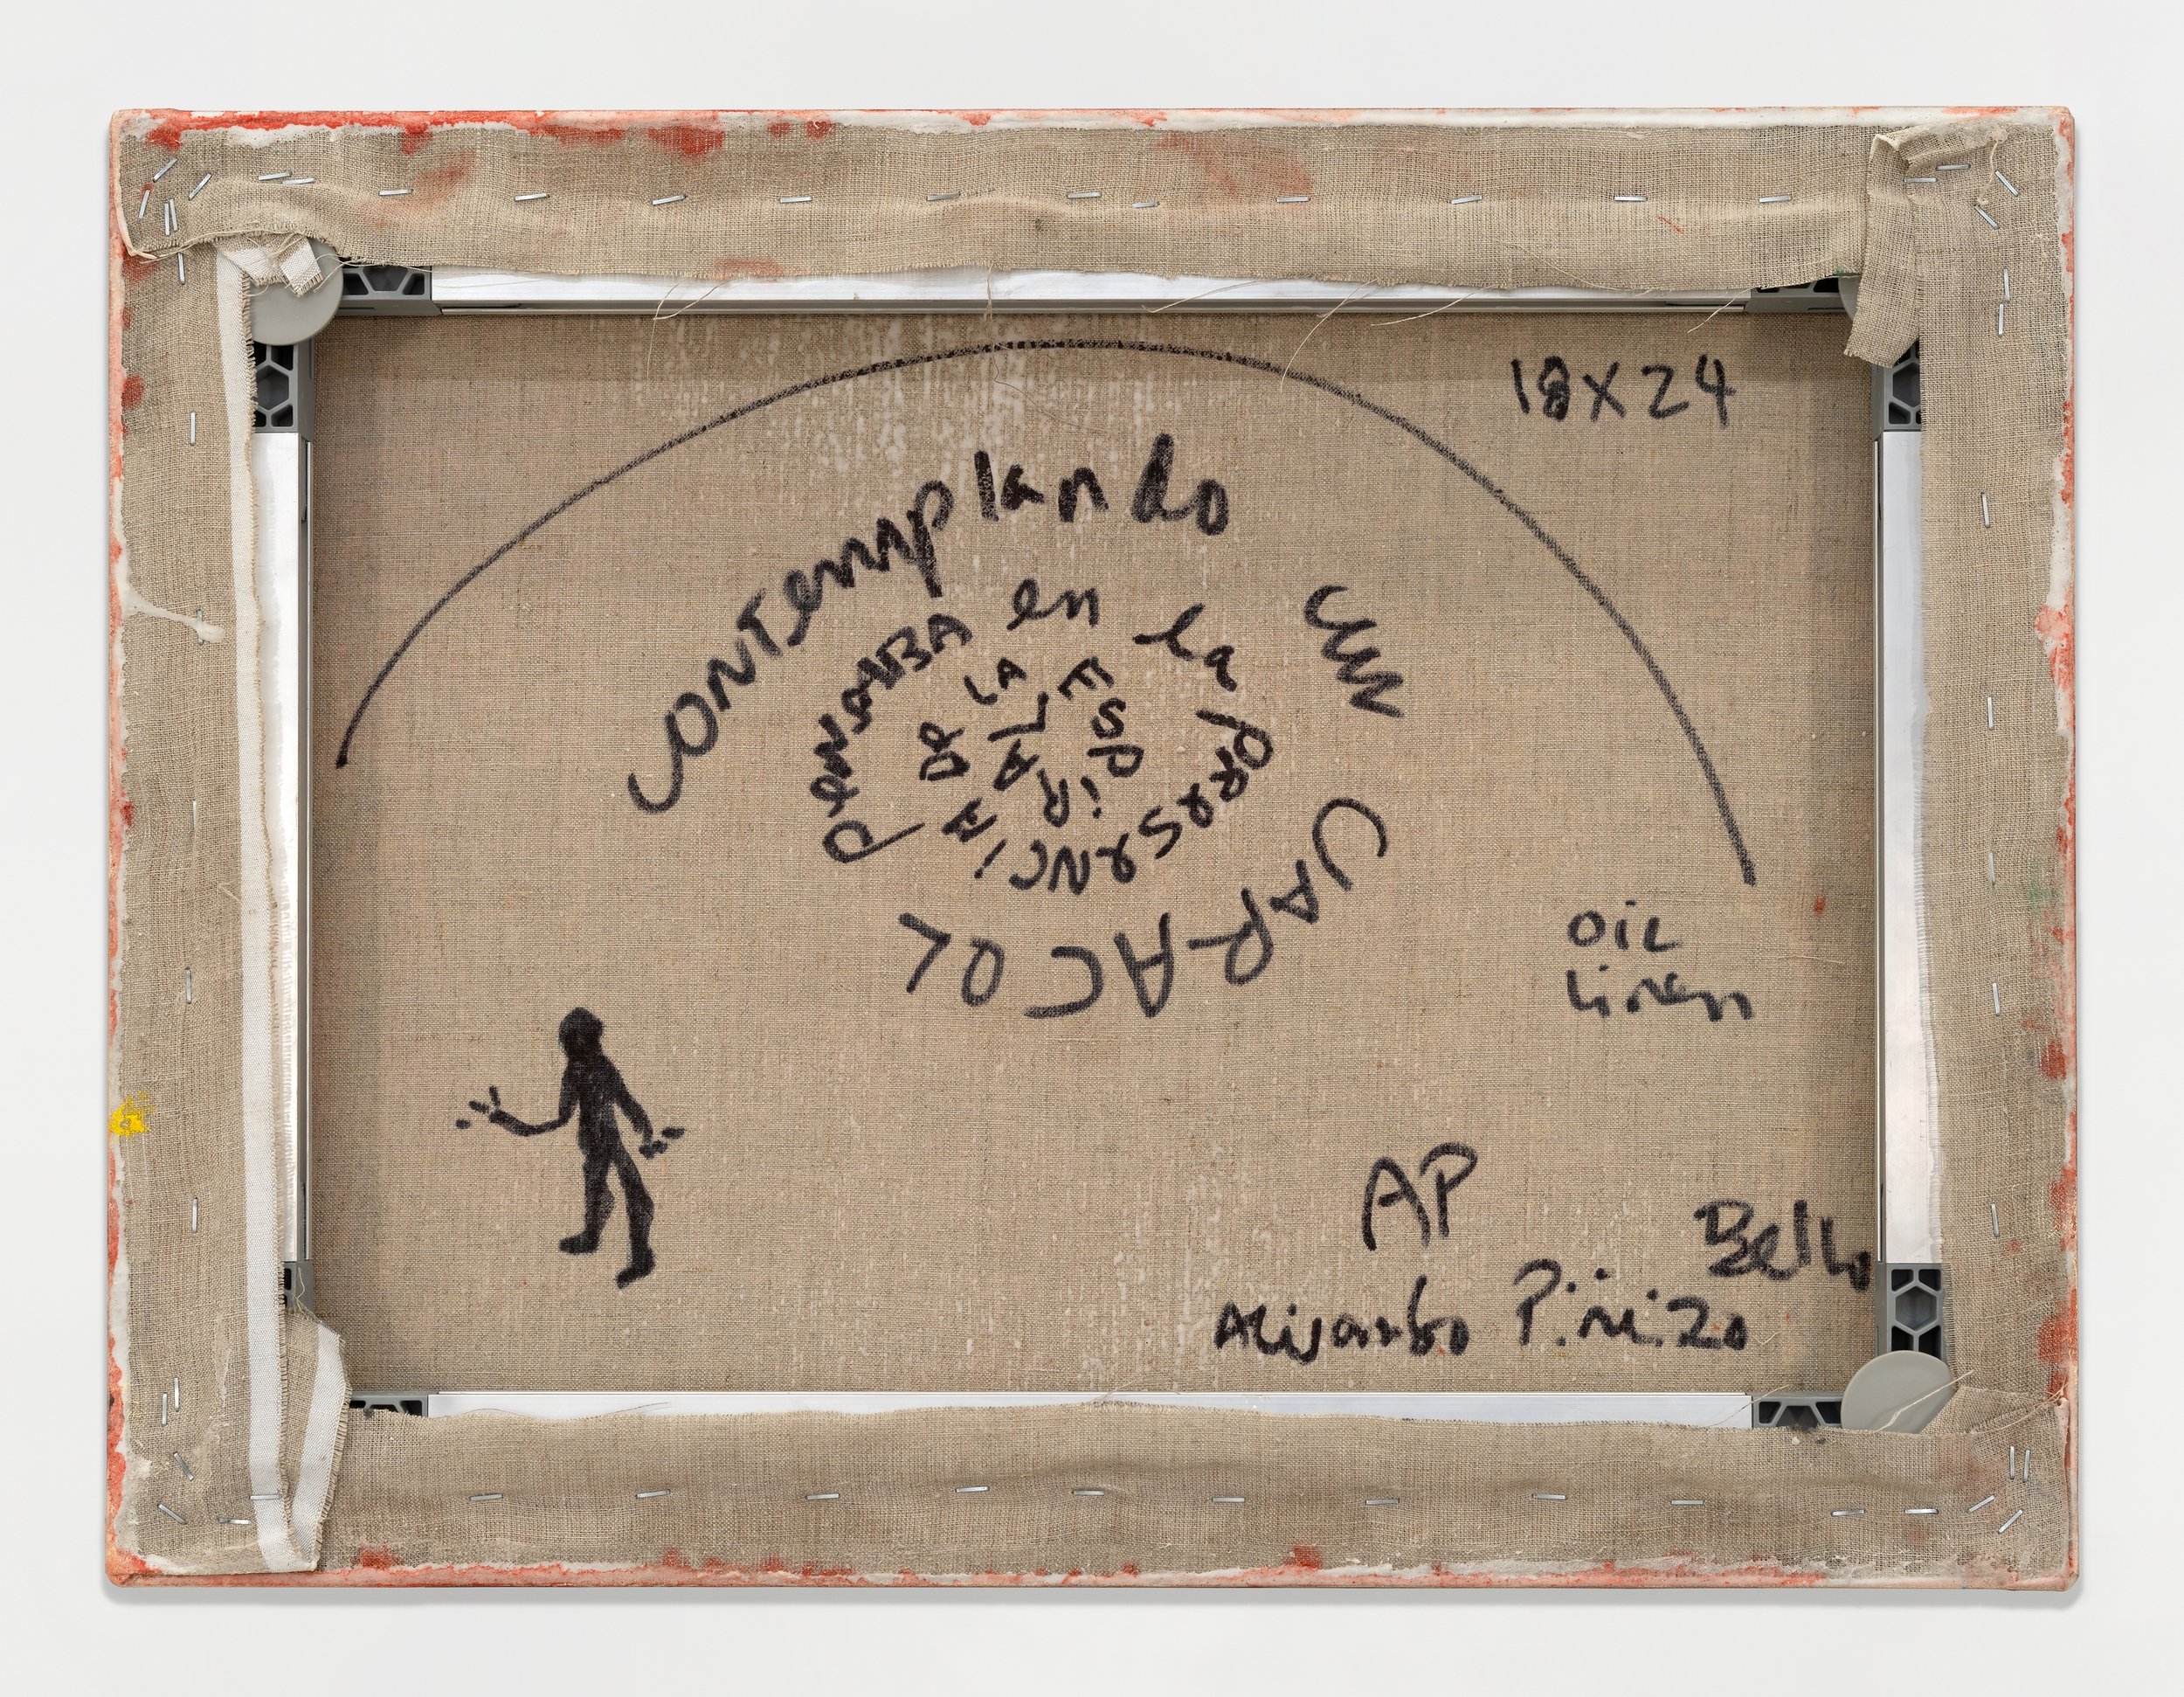 18X24
contemplando un CARACOL
pensaBA en la PReSeNCIA
De LA ESPiRAL
OiL
Linen
AP
Bello
Alejandro Piñeiro